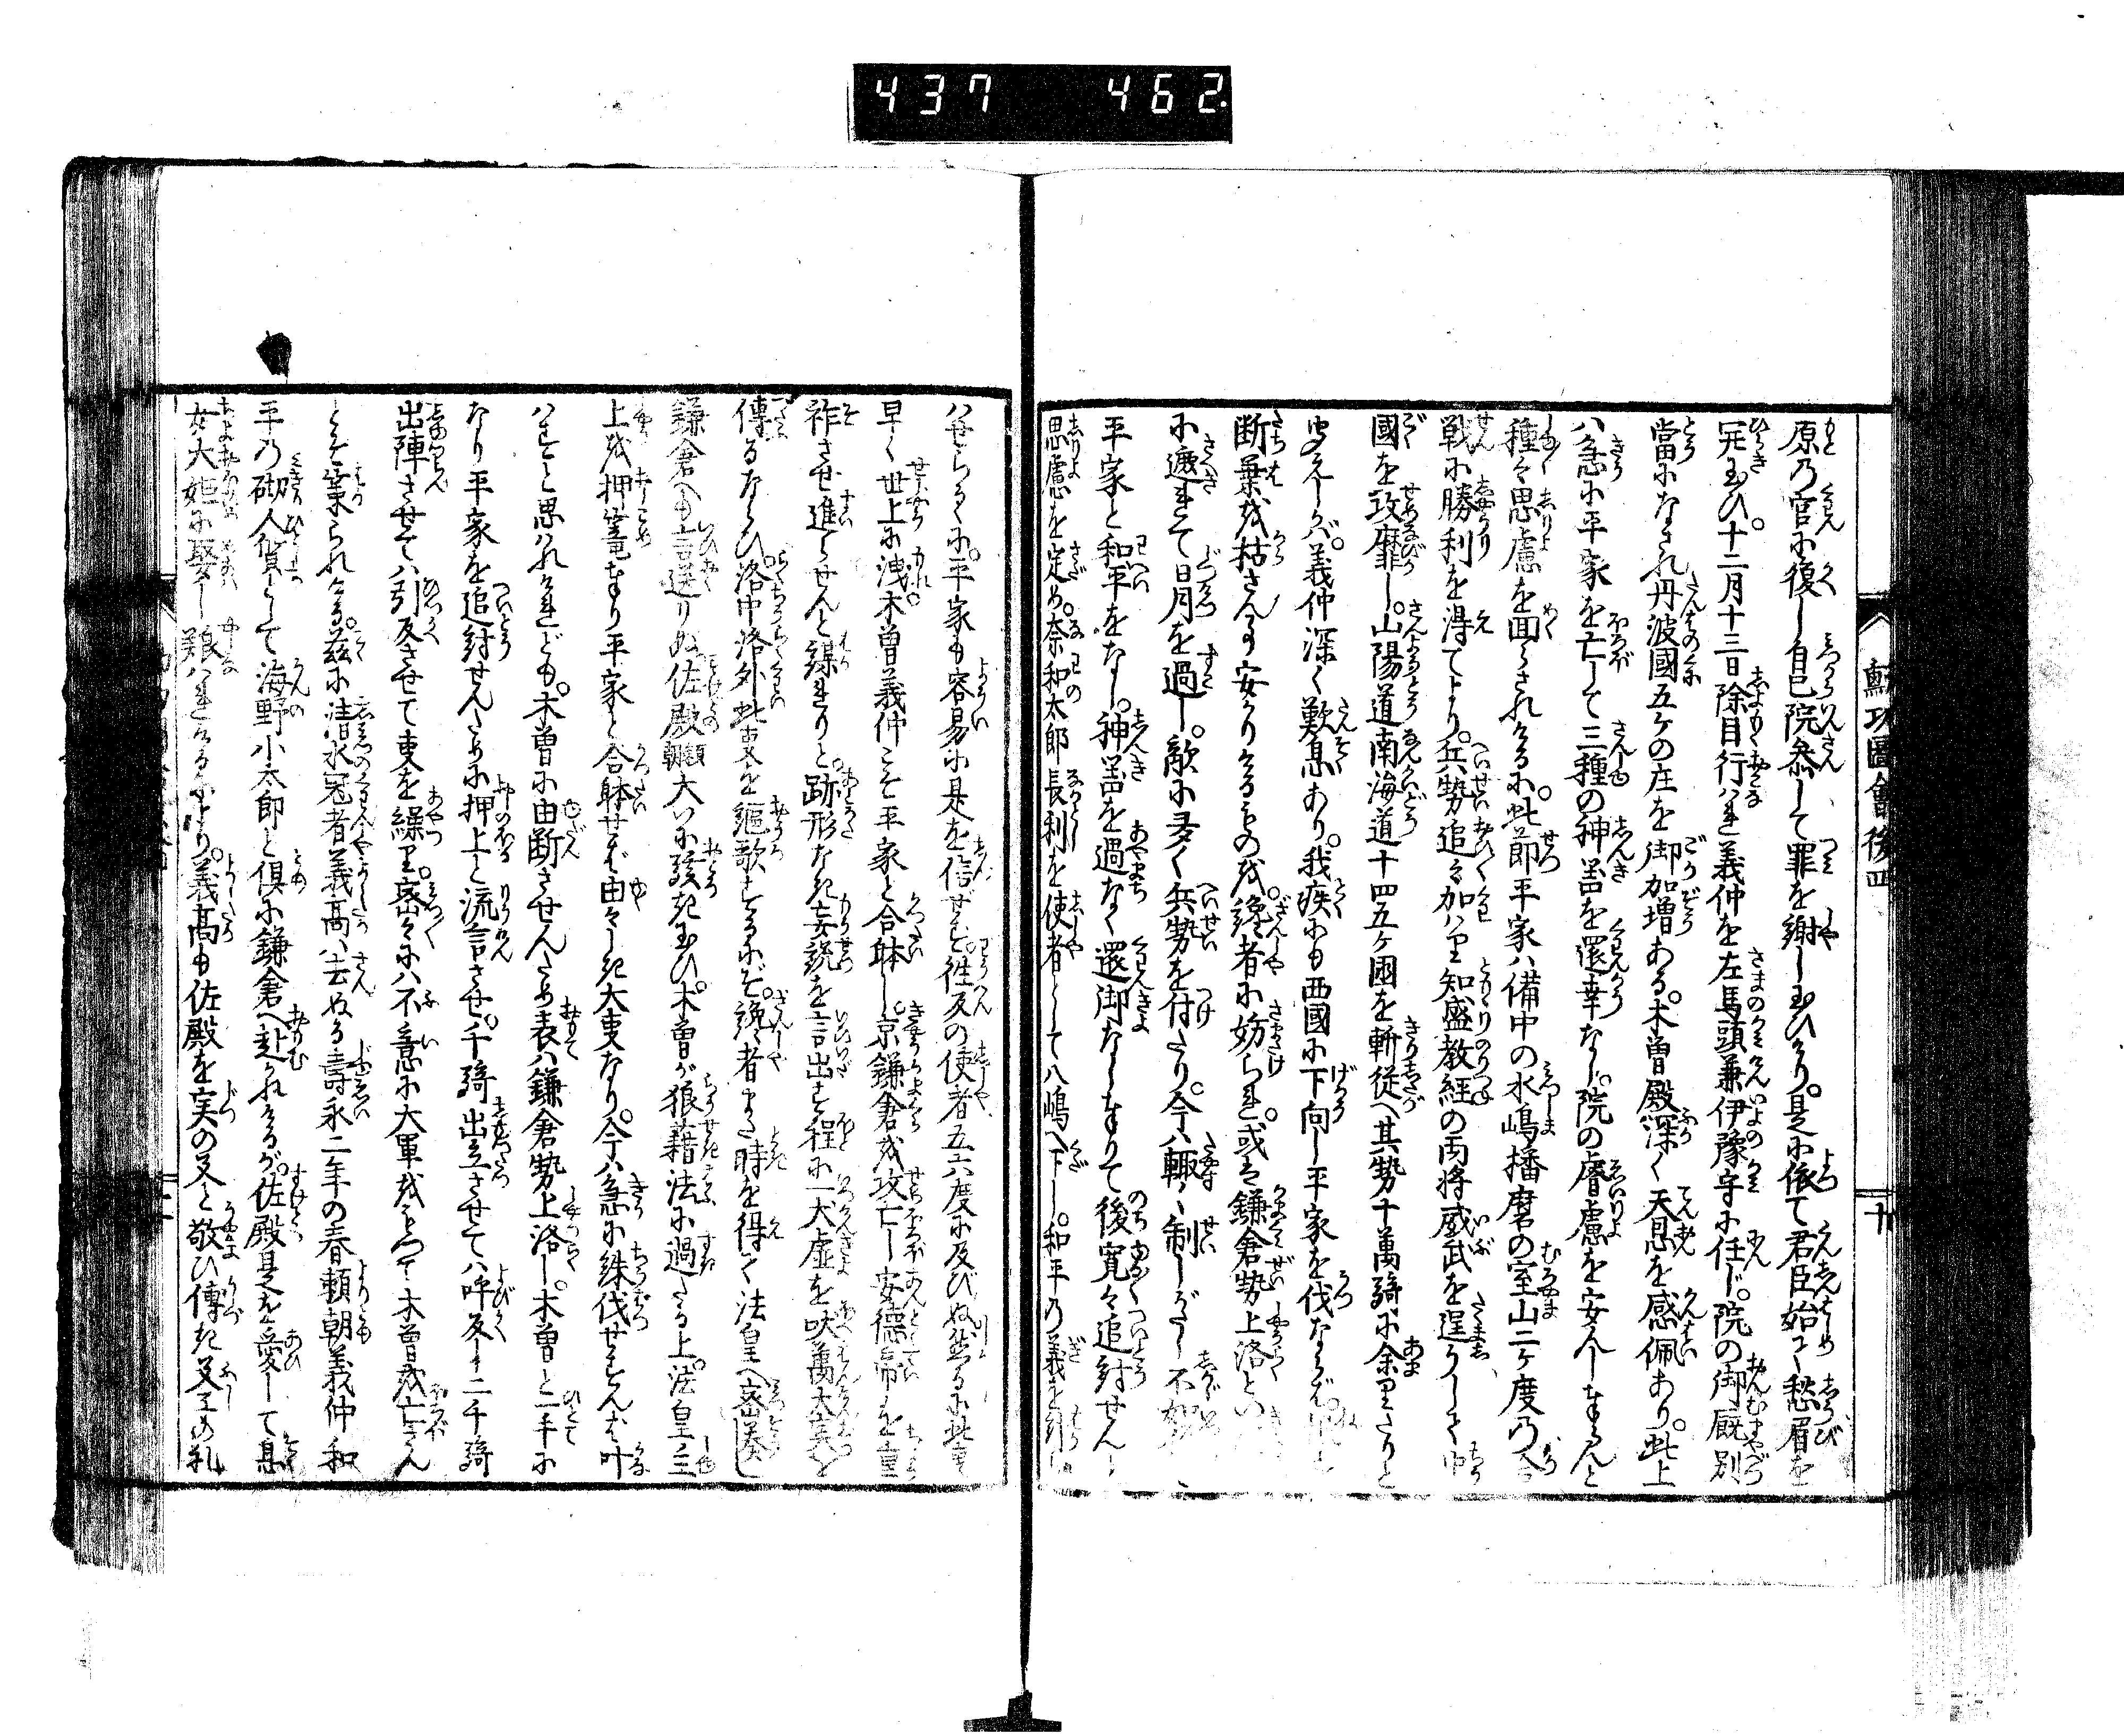 437 462
圖會後四
十
原の官に復し自己院参して罪を謝し玉ひけり。是に依て君臣始て愁眉を
ひらき玉ひ。十二月十三日除目行はれ義仲を左馬頭兼伊豫守に任じ。院の御厩別
當になされ丹波國五ケの庄を御加増ある。木曽殿深く天恩を感佩あり。此上
ハ急に平家を亡して三種の神器を還幸なし院の睿慮を安んし奉らんと
種々思慮を回らされけるに。此節平家ハ備中の水嶋播磨の室山二ケ度の合
戦に勝利を得てより。兵勢追々加ハり知盛教経の両将威武を逞うして
國を攻靡し。山陽道南海道十四五ケ国を斬従へ其勢十萬騎に余りたりと
聞えしかバ。義仲深く歎息あり。我疾にも西國に下向し平家を伐ならば。
断葉を枯さん事安かりけるものを。讒者に妨られ。或は鎌倉勢上洛とい
に遮られて日月を過し。敵に多く兵勢を付たり。今ハ輙く制しがたし不如
平家と和平をなし。神器を過なく還御なし奉りて後寛々追討せんと
思慮を定め。奈和太郎長利を使者として八嶋へ下し。和平の義を
ハせらるゝに。平家も容易に是を信ぜず。往反の使者五六度に及びぬ然るに此事
早く世上に洩。木曽義仲こそ平家と合躰し。京鎌倉を攻亡し安徳帝を重
祚させ進らせんと謀れりと。跡形なき妄説を言出す程に一犬虚を吠萬犬実を
傳るならひ。洛中洛外此事を謳歌するにぞ。讒者また時を得て法皇へ密奏し
鎌倉へも言送りぬ佐殿頼朝大いに駭き玉ひ。木曽が狼藉法に過たる上。法皇主
上を押篭奉り平家と合躰せば由々しき大事なり。今ハ急に誅伐せずんば叶
ハずと思ハれけれども。木曽に由断させんため表ハ鎌倉勢上洛し。木曽と一手に
なり平家を追討せんために押上ると流言させ。千騎出立させてハ呼反し二千騎
出陣させてハ引反させて事を繰り。密々にハ不意に大軍をもつて木曽を亡さん
とぞ策られける。茲に清水冠者義高ハ去ぬる壽永二年の春頼朝義仲和
平の砌人質として海野小太郎と倶に鎌倉へ赴かれけるが。佐殿是を愛して息
女大姫に娶し親ハれけるにより。義高も佐殿を実の父と敬ひ傳き父子の礼